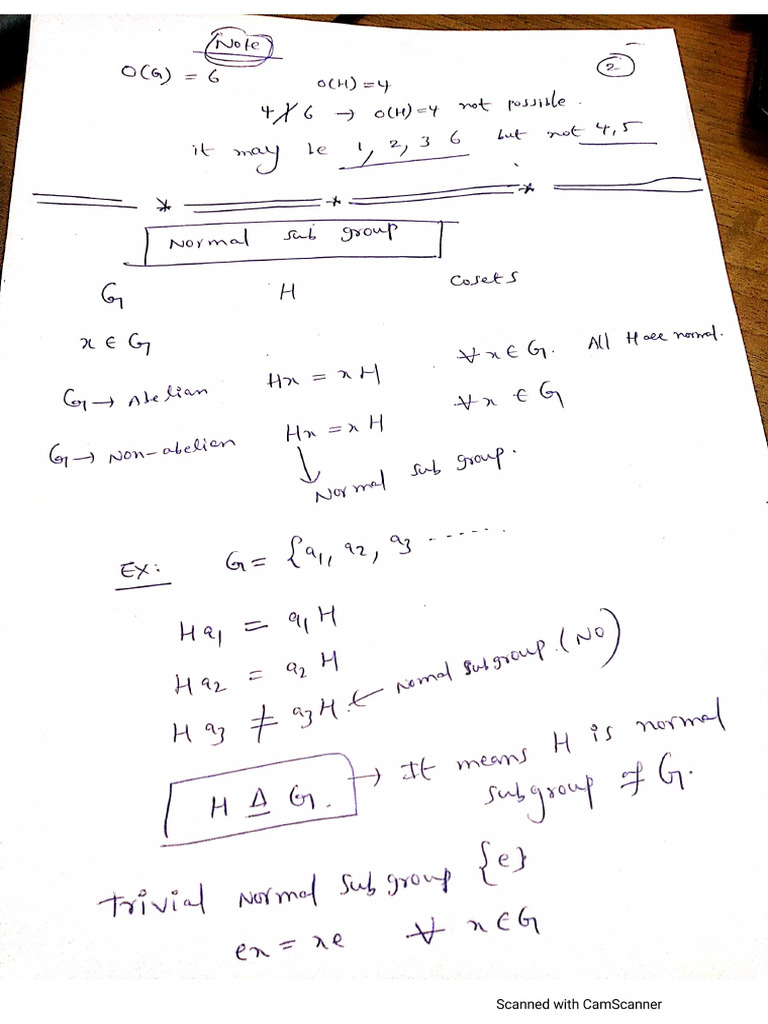 Note
2
O(G) = 6 O(H) = 4
4 ∤ 6 → O(H) = 4 not possible.
it may be 1, 2, 3 6 but not 4, 5
Normal sub group
G H Cosets
x ∈ G
G → Abelian Hx = xH ∀ x ∈ G. All H are normal.
G → Non-abelian Hx = xH ∀ x ∈ G
Normal sub group.
Ex: G = {a1, a2, a3 ......
Ha1 = a1H
Ha2 = a2H
Ha3 ≠ a3H. ← Normal subgroup. (NO)
H ⊴ G. → It means H is normal
subgroup of G.
Trivial Normal subgroup {e}
ex = xe ∀ x ∈ G
Scanned with CamScanner